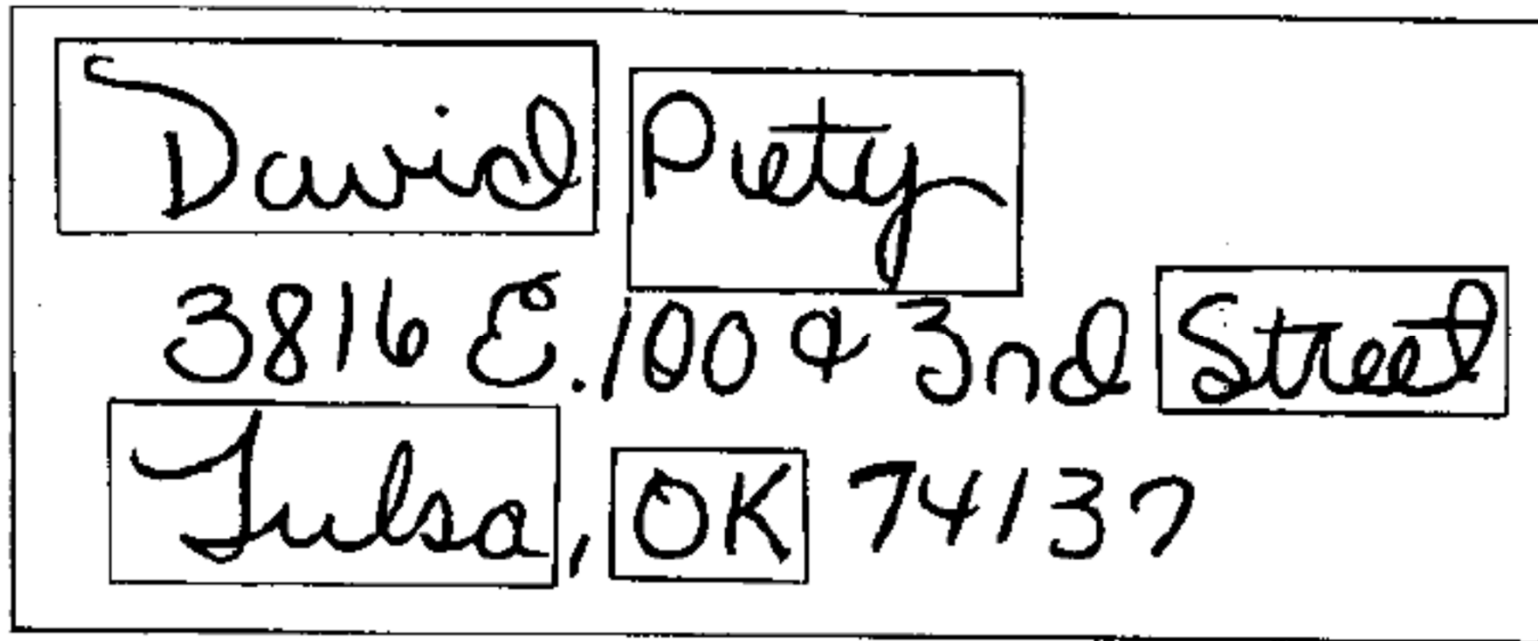 David Piety
3816 E. 100 & 3nd Street
Tulsa, OK 74137